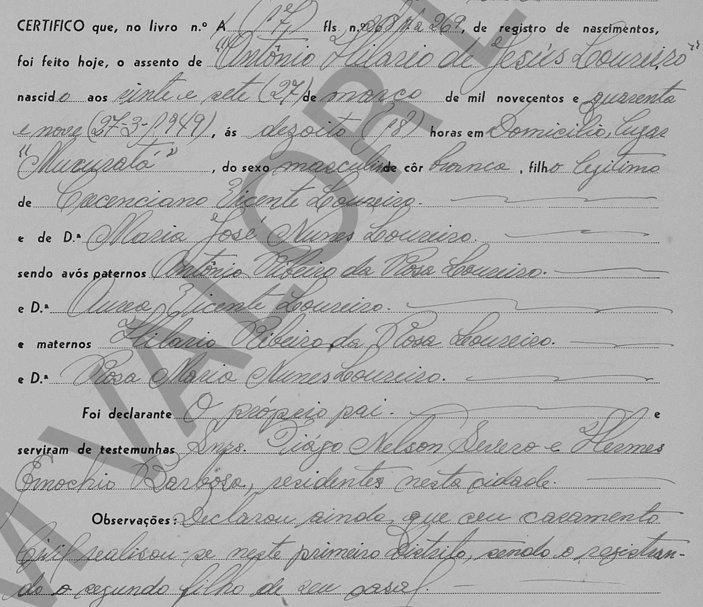 CERTIFICO que, no livro n.º A (1º) 7, fls n.º 268 v à 269, de registro de nascimentos,
foi feito hoje, o assento de "Antônio Hilario de Jesús Loureiro"
nascido aos vinte e sete (27) de março de mil novecentos e quarenta
e nove (27-3-1949), ás dezoito (18) horas em Domicilio, lugar
"Mucuratá", do sexo masculino de côr branca, filho legitimo
de Crecenciano Vicente Loureiro.
e de D.ª Maria José Nunes Loureiro.
sendo avós paternos Antônio Ribeiro da Rosa Loureiro.
e D.ª Aurea Vicente Loureiro.
e maternos Hilario Ribeiro da Rosa Loureiro.
e D.ª Rosa Maria Nunes Loureiro.
Foi declarante O própeio pai. e
serviram de testemunhas Snrs. Tiago Nelson Severo e Hermes
Enochio Barbósa, residentes nesta cidade.
Observações: Declarou ainda, que seu casamento
Civil realisou-se neste primeiro Distrito, sendo o registran-
do o segundo filho de seu casal.
VALOR